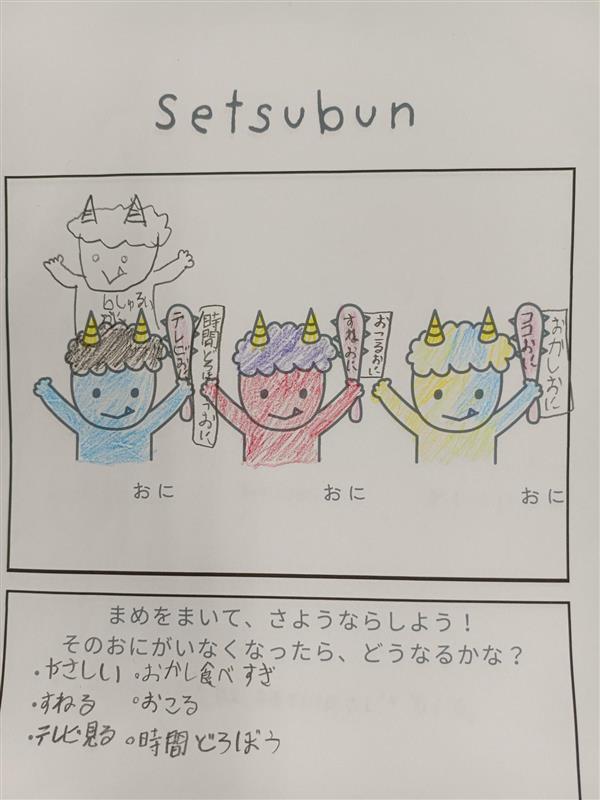 setsubun
テレビおに
時間どろぼうおに
すねおに
おこるおに
ココおに
おかしおに
おに
おに
おに
まめをまいて、さようならしよう！
そのおにがいなくなったら、どうなるかな？
・やさしい ・おかし食べすぎ
・すねる ・おこる
・テレビ見る ・時間どろぼう